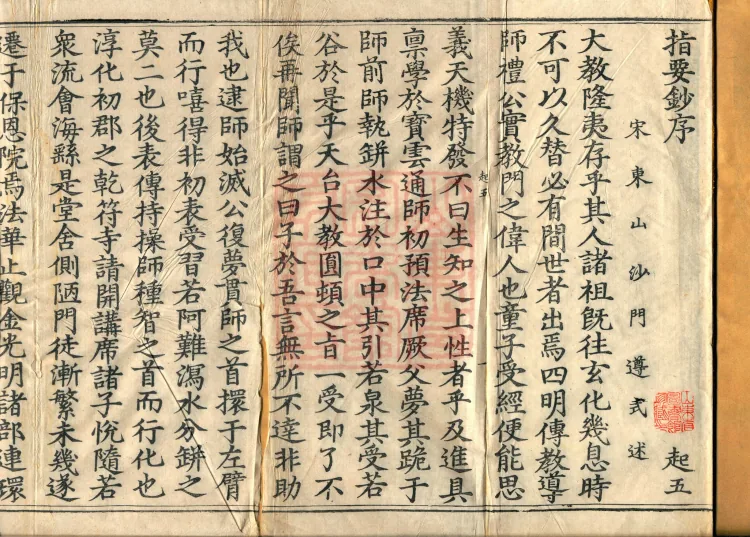 指要鈔序 起五
宋東山沙門遵式述
大教隆夷存乎其人諸祖旣往玄化幾息時
不可以久替必有間世者出焉四明傳教導
師禮公實教門之偉人也童子受經便能思
義天機特發不曰生知之上性者乎及進具
起五
稟學於寶雲通師初預法席厥父夢其跪于
師前師執缾水注於口中其引若泉其受若
谷於是乎天台大教圓頓之旨一受即了不
俟再聞師謂之曰子於吾言無所不達非助
我也逮師始滅公復夢貫師之首擐于左臂
而行嘻得非初表受習若阿難瀉水分缾之
莫二也後表傳持操師種智之首而行化也
淳化初郡之乾符寺請開講席諸子悅隨若
衆流會海繇是堂舍側陋門徒漸繁未幾遂
遷于保恩院焉法華止觀金光明諸部連環